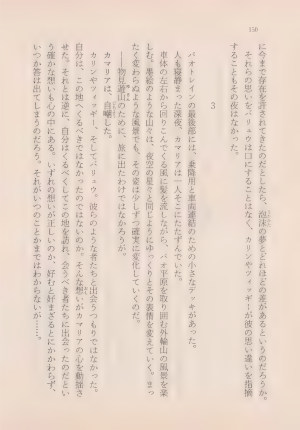 158
に今まで存在を許されてきたのだとしたら、泡沫の夢とどれほどの差があるというのだろうか。
それらの思いをバリュウは口にすることはなく、カリンやフィッギーが彼の思い違いを指摘
することもその夜はなかった。
3
パオトレインの最後部には、乗降用と車両連結のための小さなデッキがあった。
人も寝静まった深夜、カマリアは一人そこにたたずんでいた。
車体の左右から回りこんでくる風に髪を流しながら、パオ平原を取り囲む外輪山の風景を楽
しむ。墨絵のような山々は、夜空の星々と同じようにゆっくりとその表情を変えていく。まっ
たく変わらぬような風景でも、その姿は少しずつ確実に変化していくのだ。
――物見遊山のために、旅に出たわけではなかったが。
カマリアは、自嘲した。
カリンやフィッギー、そしてバリュウ。彼らのような者たちと出会うつもりではなかった。
自分は、この地へくるべきではなかったのではないのか。そんな想いがカマリアの心を動揺さ
せた。それとは逆に、自分はくるべくしてこの地を訪れ、会うべき者たちに出会ったのだとい
う確かな想いも心の中にある。いずれの想いが正しいのか、好むと好まざるとにかかわらず、
いつか答は出てしまうのだろう。それがいつのことかまではわからないが……。